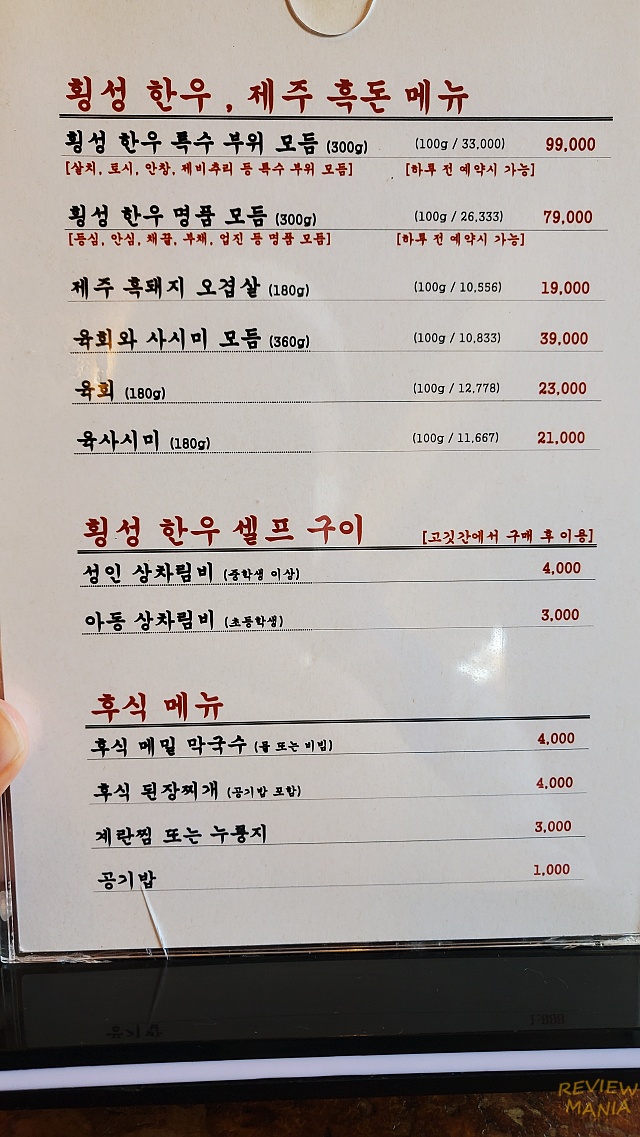 횡성 한우, 제주 흑돈 메뉴
횡성 한우 특수 부위 모듬 (300g) (100g / 33,000) 99,000
[살치, 토시, 안창, 제비추리 등 특수 부위 모듬] [하루 전 예약시 가능]
횡성 한우 명품 모듬 (300g) (100g / 26,333) 79,000
[등심, 안심, 채끝, 부채, 업진 등 명품 모듬] [하루 전 예약시 가능]
제주 흑돼지 오겹살 (180g) (100g / 10,556) 19,000
육회와 사시미 모듬 (360g) (100g / 10,833) 39,000
육회 (180g) (100g / 12,778) 23,000
육사시미 (180g) (100g / 11,667) 21,000
횡성 한우 셀프 구이 [고깃간에서 구매 후 이용]
성인 상차림비 (중학생 이상) 4,000
아동 상차림비 (초등학생) 3,000
후식 메뉴
후식 메밀 막국수 (물 또는 비빔) 4,000
후식 된장찌개 (공기밥 포함) 4,000
계란찜 또는 누룽지 3,000
공기밥 1,000
REVIEW
MANIA